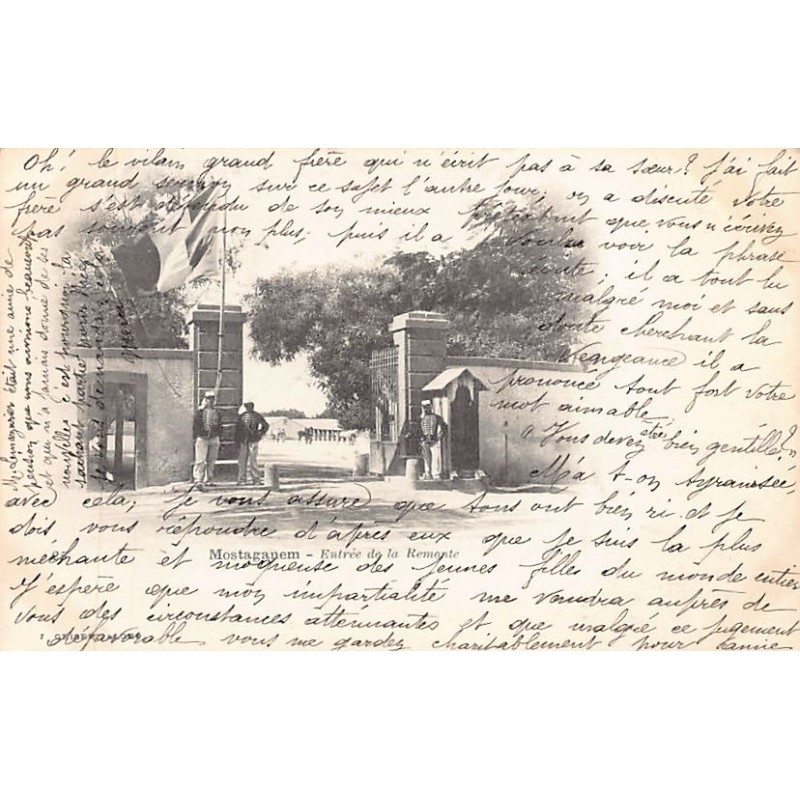 Oh! le vilain grand frère qui n'écrit pas à sa sœur? J'ai fait
un grand sermon sur ce sujet l'autre jour; on a discuté. Votre
frère s'est défendu de son mieux prétextant que vous n'écrivez
pas souvent non plus; puis il a voulu voir la phrase
écrite; il a tout lu
malgré moi et sans
doute cherchant la
vengeance il a
prononcé tout fort votre
mot aimable
"Vous devez être bien gentille?"
M'a t-on tyrannisée,
avec cela; je vous assure que tous ont bien ri et je
dois vous répondre d'après eux que je suis la plus
méchante et moqueuse des jeunes filles du monde entier
J'espère que mon impartialité me vaudra auprès de
vous des circonstances atténuantes et que malgré ce jugement
défavorable vous me gardez charitablement pour amie
Mostaganem - Entrée de la Remonte
était une amie de
pension que nous aimions beaucoup
et qui n'a jamais donné de ses
nouvelles c'est pourquoi la
sachant
je vous demandais